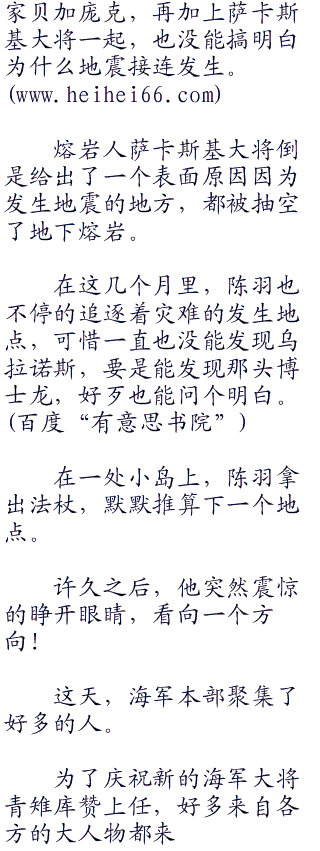 家贝加庞克，再加上萨卡斯
基大将一起，也没能搞明白
为什么地震接连发生。
(www.heihei66.com)
熔岩人萨卡斯基大将倒
是给出了一个表面原因因为
发生地震的地方，都被抽空
了地下熔岩。
在这几个月里，陈羽也
不停的追逐着灾难的发生地
点，可惜一直也没能发现乌
拉诺斯，要是能发现那头博
士龙，好歹也能问个明白。
(百度“有意思书院”)
在一处小岛上，陈羽拿
出法杖，默默推算下一个地
点。
许久之后，他突然震惊
的睁开眼睛，看向一个方
向！
这天，海军本部聚集了
好多的人。
为了庆祝新的海军大将
青雉库赞上任，好多来自各
方的大人物都来